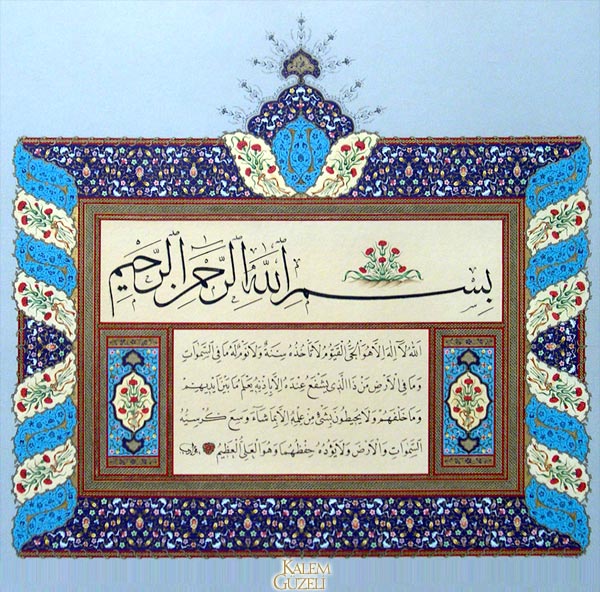 بِسْمِ اللّٰهِ الرَّحْمٰنِ الرَّحِيمِ
اَللّٰهُ لَا اِلٰهَ اِلَّا هُوَ الْحَىُّ الْقَيُّومُ لَا تَأْخُذُهُ سِنَةٌ وَلَا نَوْمٌ لَهُ مَا فِى السَّمٰوَاتِ
وَمَا فِى الْاَرْضِ مَنْ ذَا الَّذِى يَشْفَعُ عِنْدَهُ اِلَّا بِاِذْنِهِ يَعْلَمُ مَا بَيْنَ اَيْدِيهِمْ
وَمَا خَلْفَهُمْ وَلَا يُحِيطُونَ بِشَىْءٍ مِنْ عِلْمِهِ اِلَّا بِمَا شَاءَ وَسِعَ كُرْسِيُّهُ
السَّمٰوَاتِ وَالْاَرْضَ وَلَا يَؤُدُهُ حِفْظُهُمَا وَهُوَ الْعَلِىُّ الْعَظِيمُ
KALEM
GÜZELİ